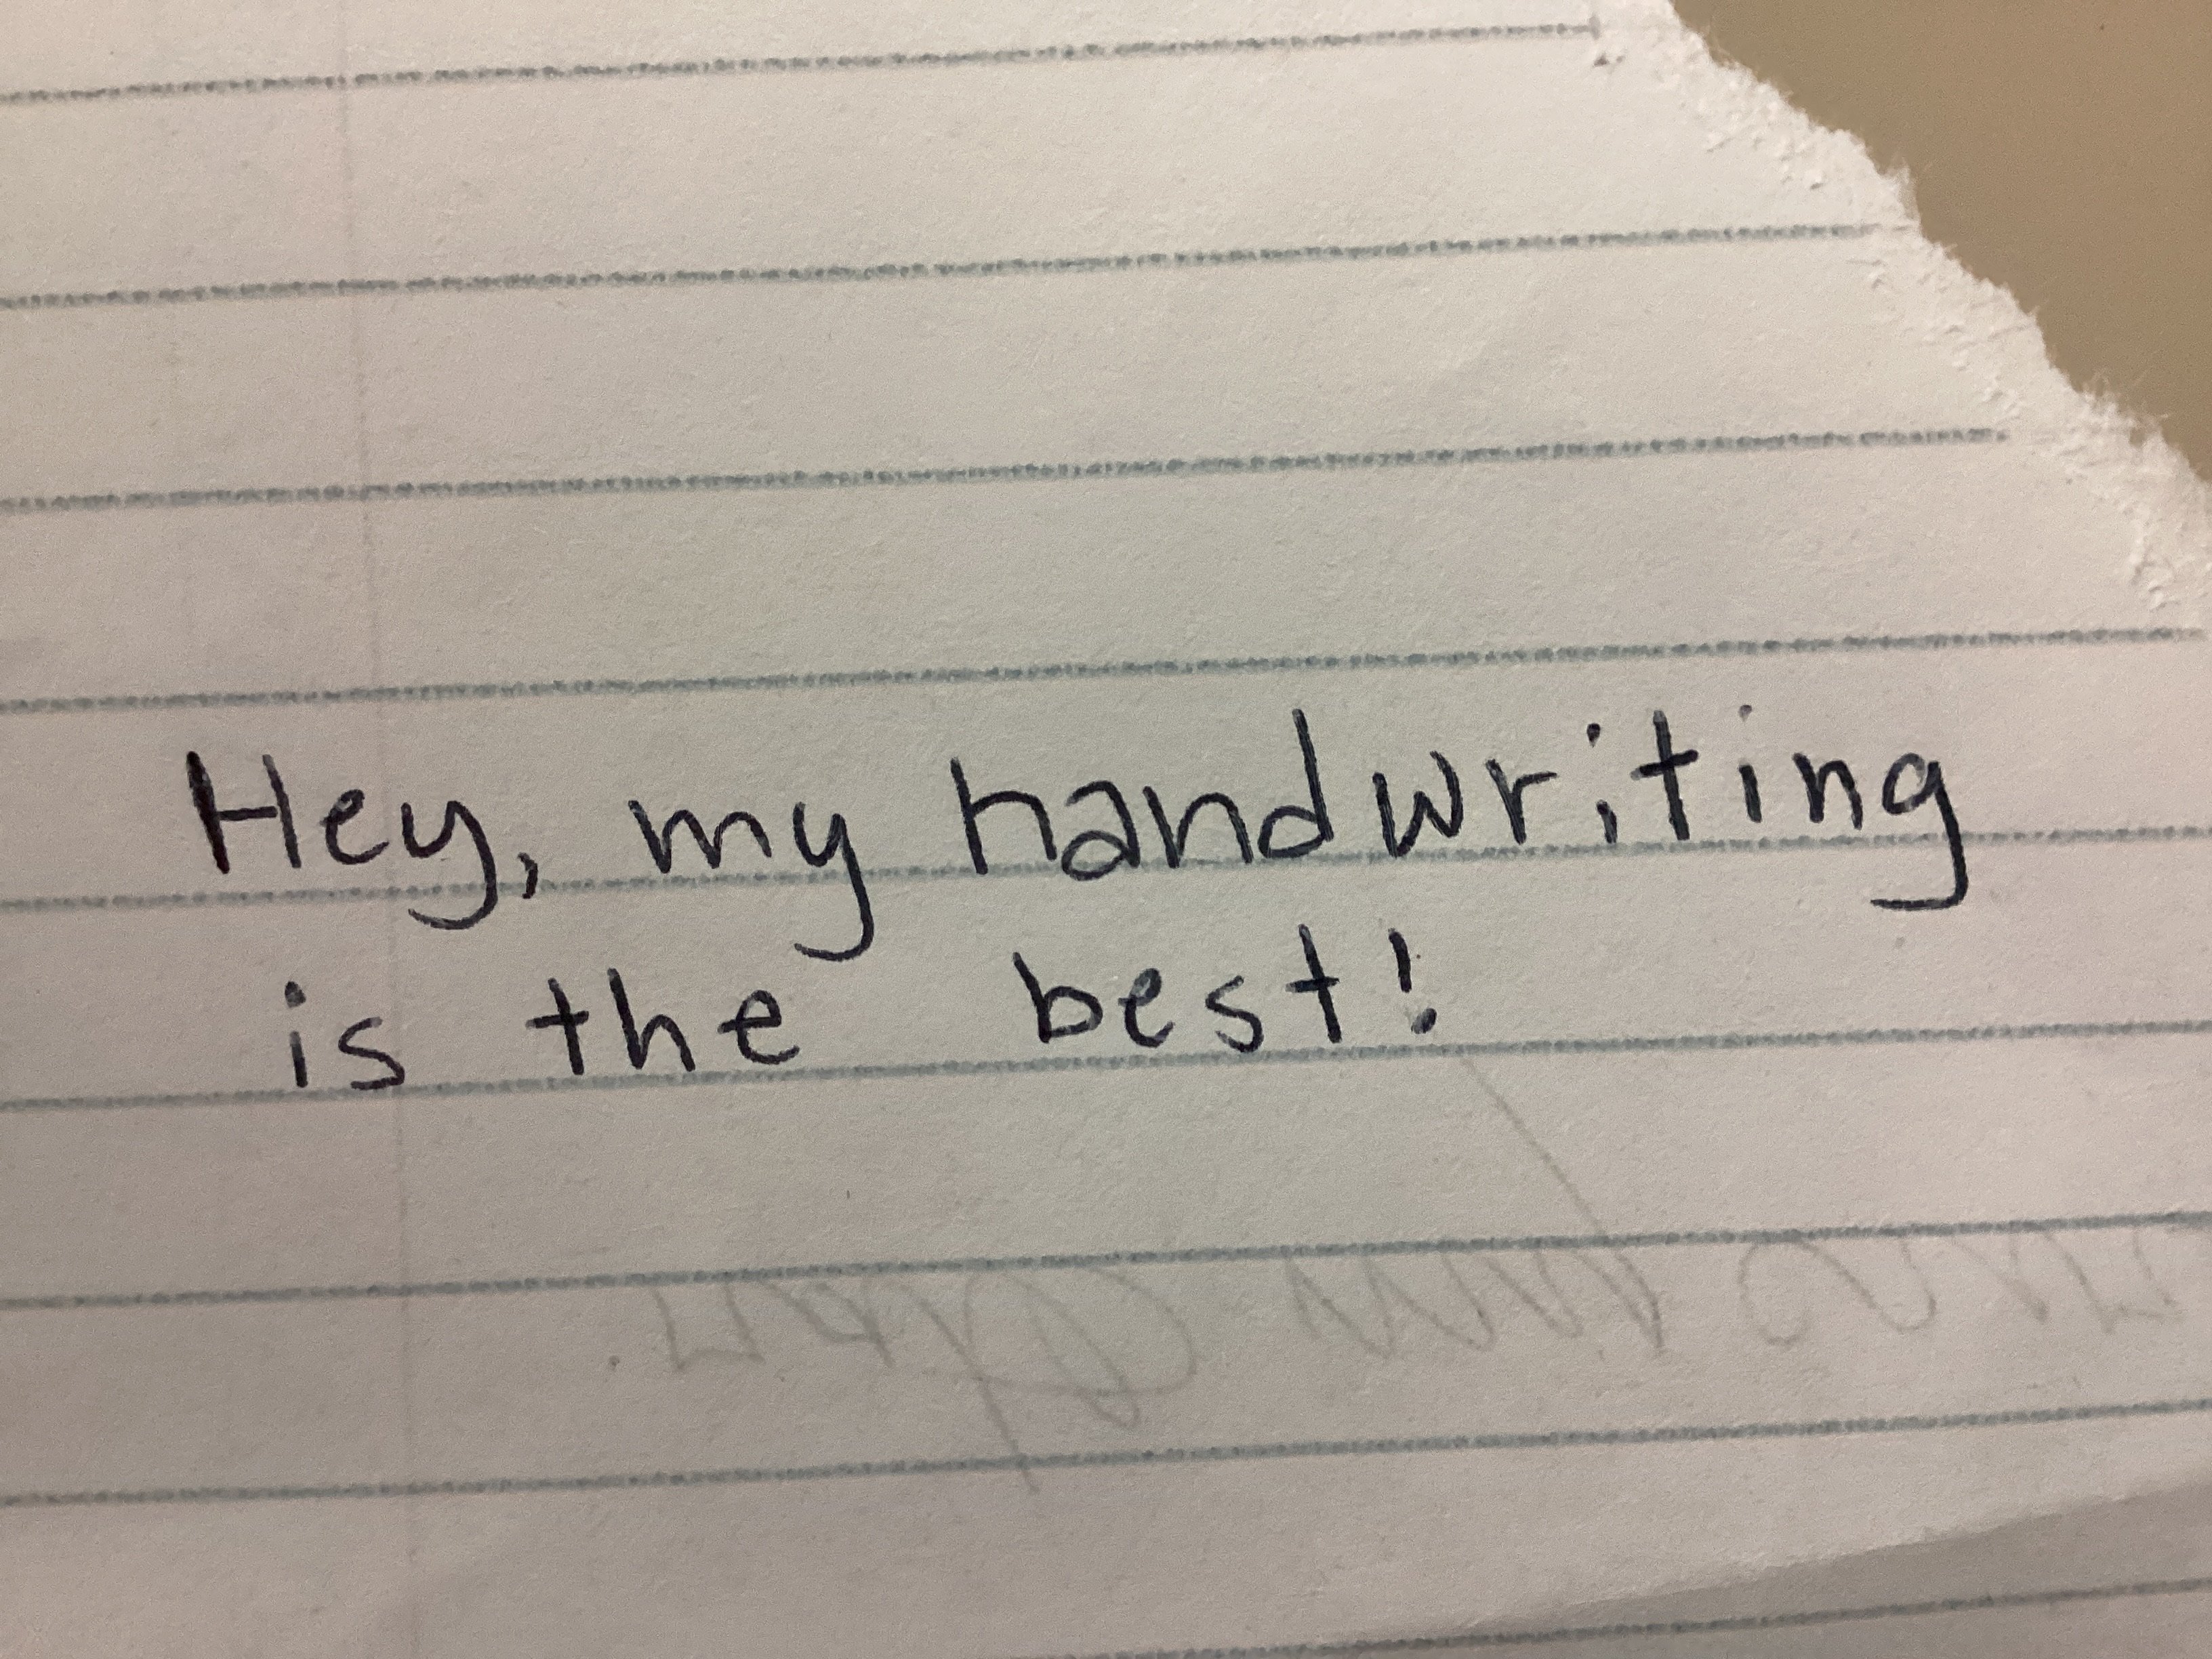 Hey, my handwriting
is the best!